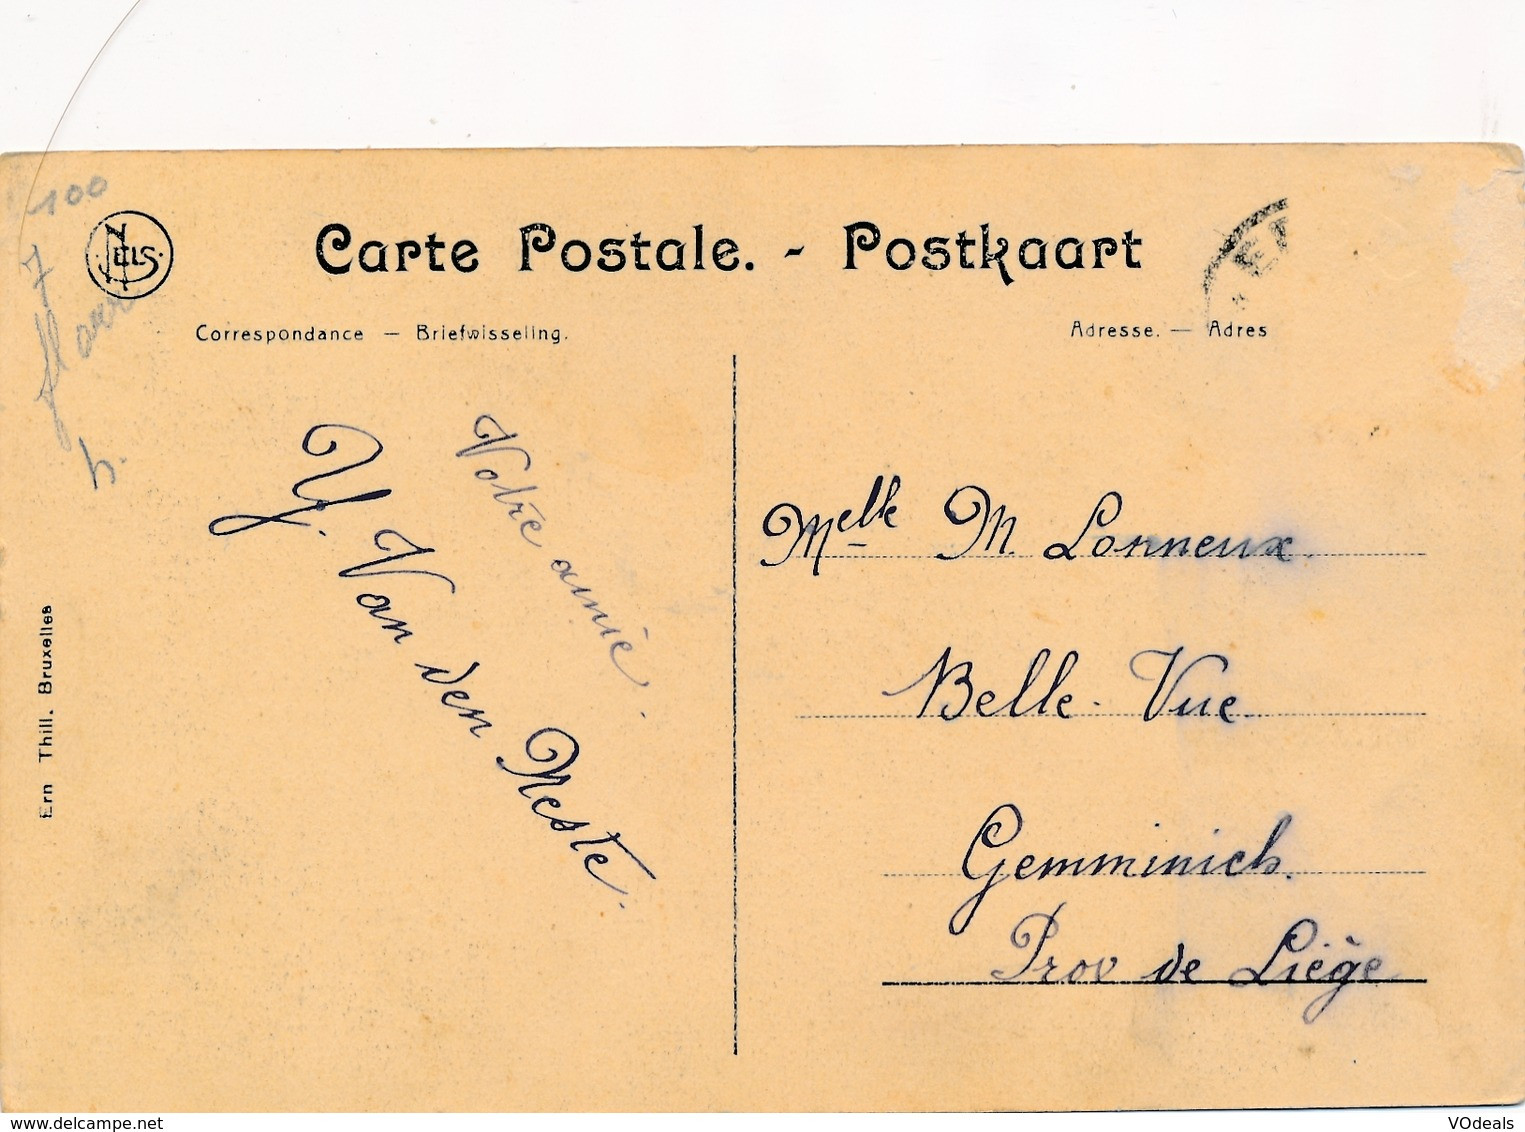 100
7
NELS.
Carte Postale. - Postkaart
Correspondance — Briefwisseling.
Adresse. — Adres
Votre amie.
Y. Van den Neste.
Melle M. Lonneux.
Belle-Vue
Gemminich.
Prov de Liège
Ern Thill. Bruxelles
www.delcampe.net
VOdeals